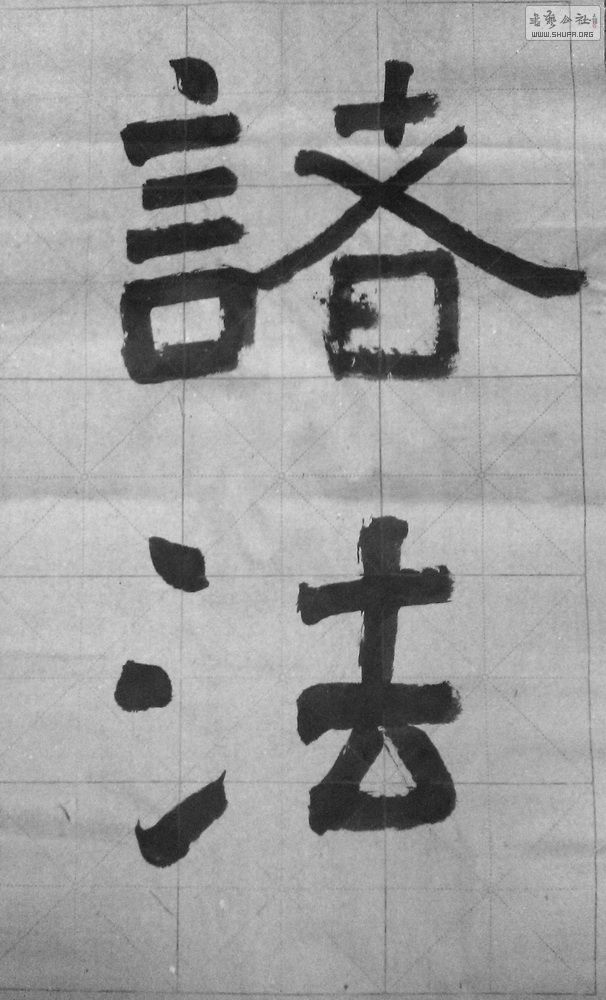 諸法
書艺公社
WWW.SHUFA.ORG